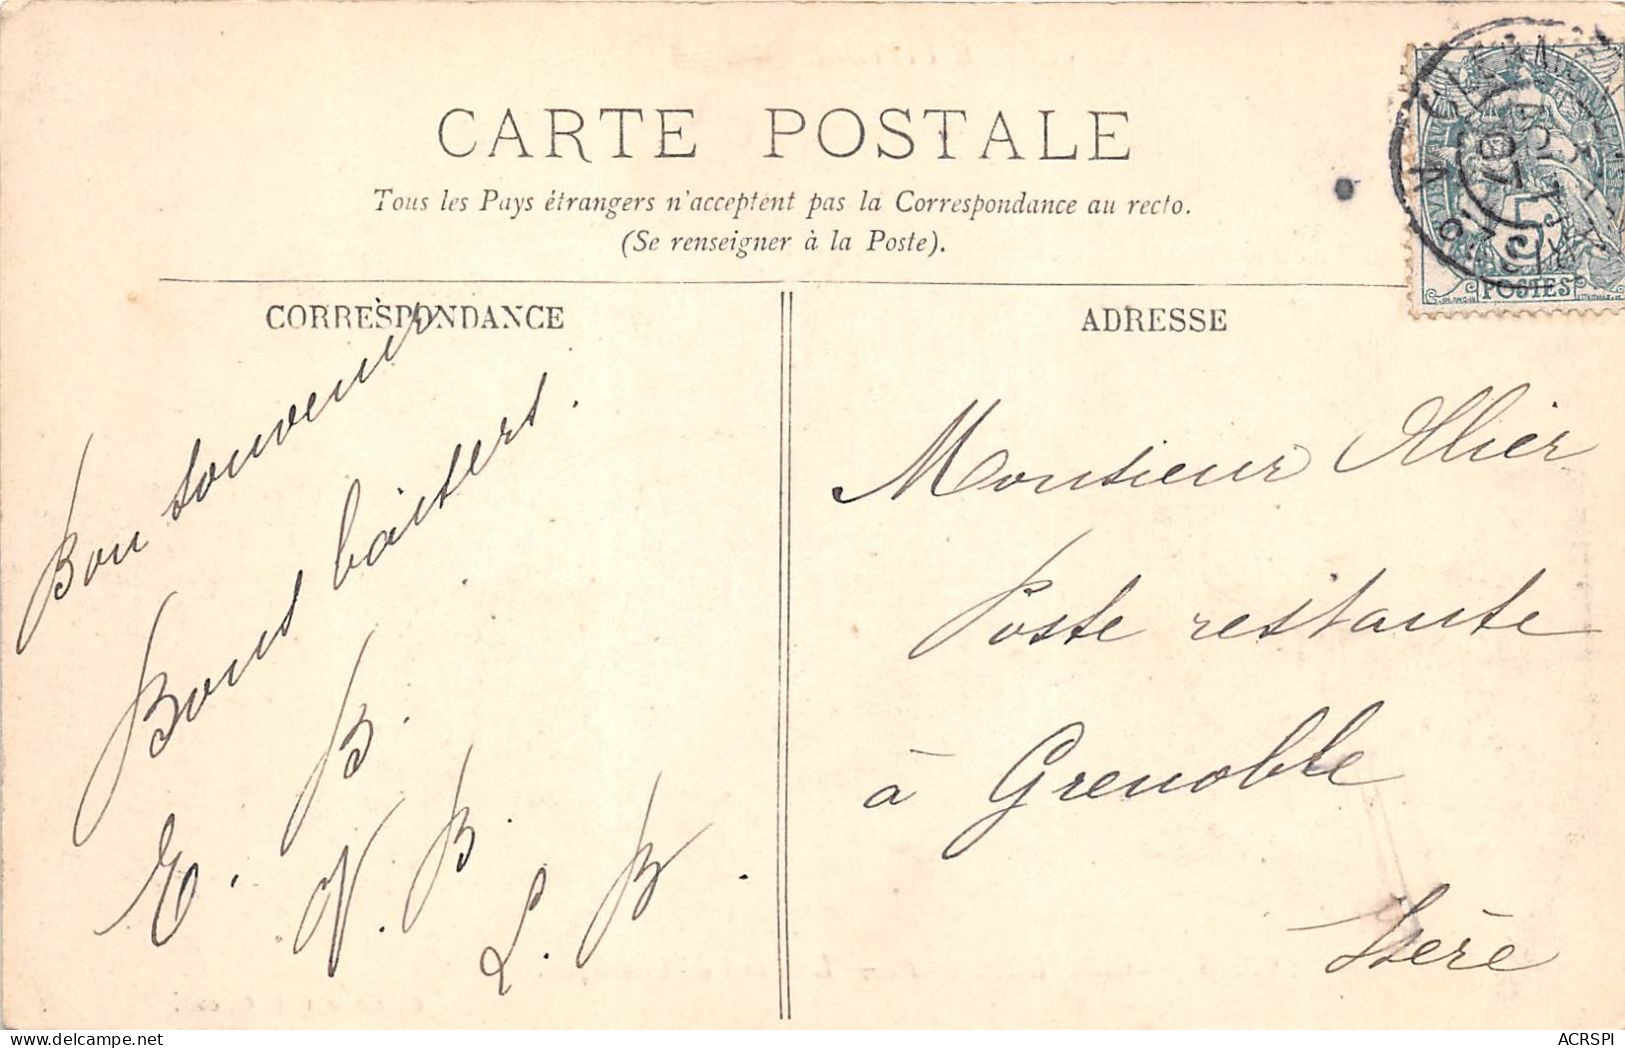 CARTE POSTALE
Tous les Pays étrangers n'acceptent pas la Correspondance au recto.
(Se renseigner à la Poste).
CORRESPONDANCE
Bon souvenir
Bons baisers.
E. B.
V. B.
L. B.
ADRESSE
Monsieur Allier
Poste restante
à Grenoble
Isère
5
POSTES
07
delcampe.net
ACRSPI